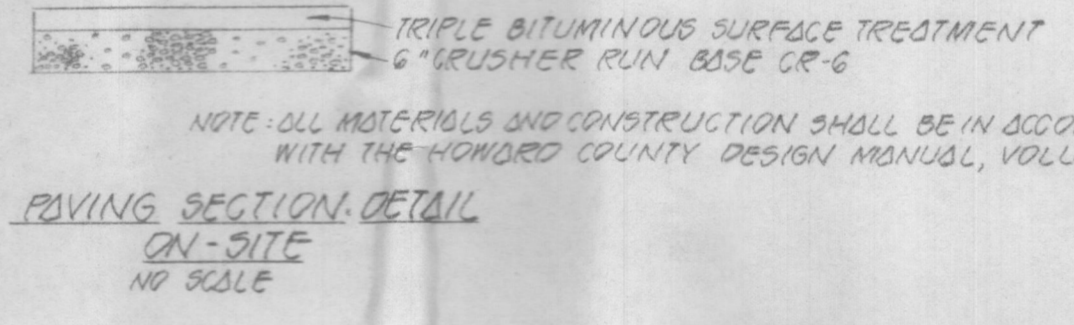 TRIPLE BITUMINOUS SURFACE TREATMENT
6" CRUSHER RUN BASE CR-6
NOTE: ALL MATERIALS AND CONSTRUCTION SHALL BE IN
WITH THE HOWARD COUNTY DESIGN MANUAL,
PAVING SECTION. DETAIL
ON-SITE
NO SCALE